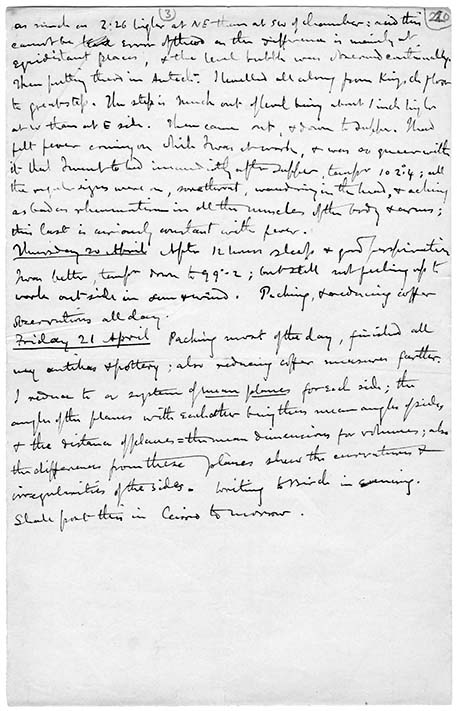 (3)
220
as much as 2.26 higher at NE than at SW of chamber: and this
cannot be error of theod as the difference is mainly at
equidistant places, & the level bubble was observed continually.
Then putting theod in Antech. I levelled all along from King's ch floor
to great step. The step is much out of level being about 1 inch higher
at W than at E side. Then came out, & down to supper. I had
felt fever coming on while I was at work, & was so queer with
it that I went to bed immediately after supper, tempr 102°.4; all
the usual signs were on, sore throat, wandering in the head, & aching
as bad as rheumatism in all the muscles of the body & arms;
this last is curiously constant with fever.
Thursday 20 April After 12 hours sleep & good perspiration
I was better, tempr down to 99°.2; but still not feeling up to
work outside in sun & wind. Packing, & reducing coffer
observations all day.
Friday 21 April Packing most of the day, finished all
my antikas & pottery; also reducing coffer measures further.
I reduce to a system of mean planes for each side; the
angles of the planes with each other being the mean angles of sides
& the distance of planes = the mean dimensions for volumes; also
the differences from these planes shew the curvatures &
irregularities of the sides. Writing to in evening.
Shall post this in Cairo tomorrow.